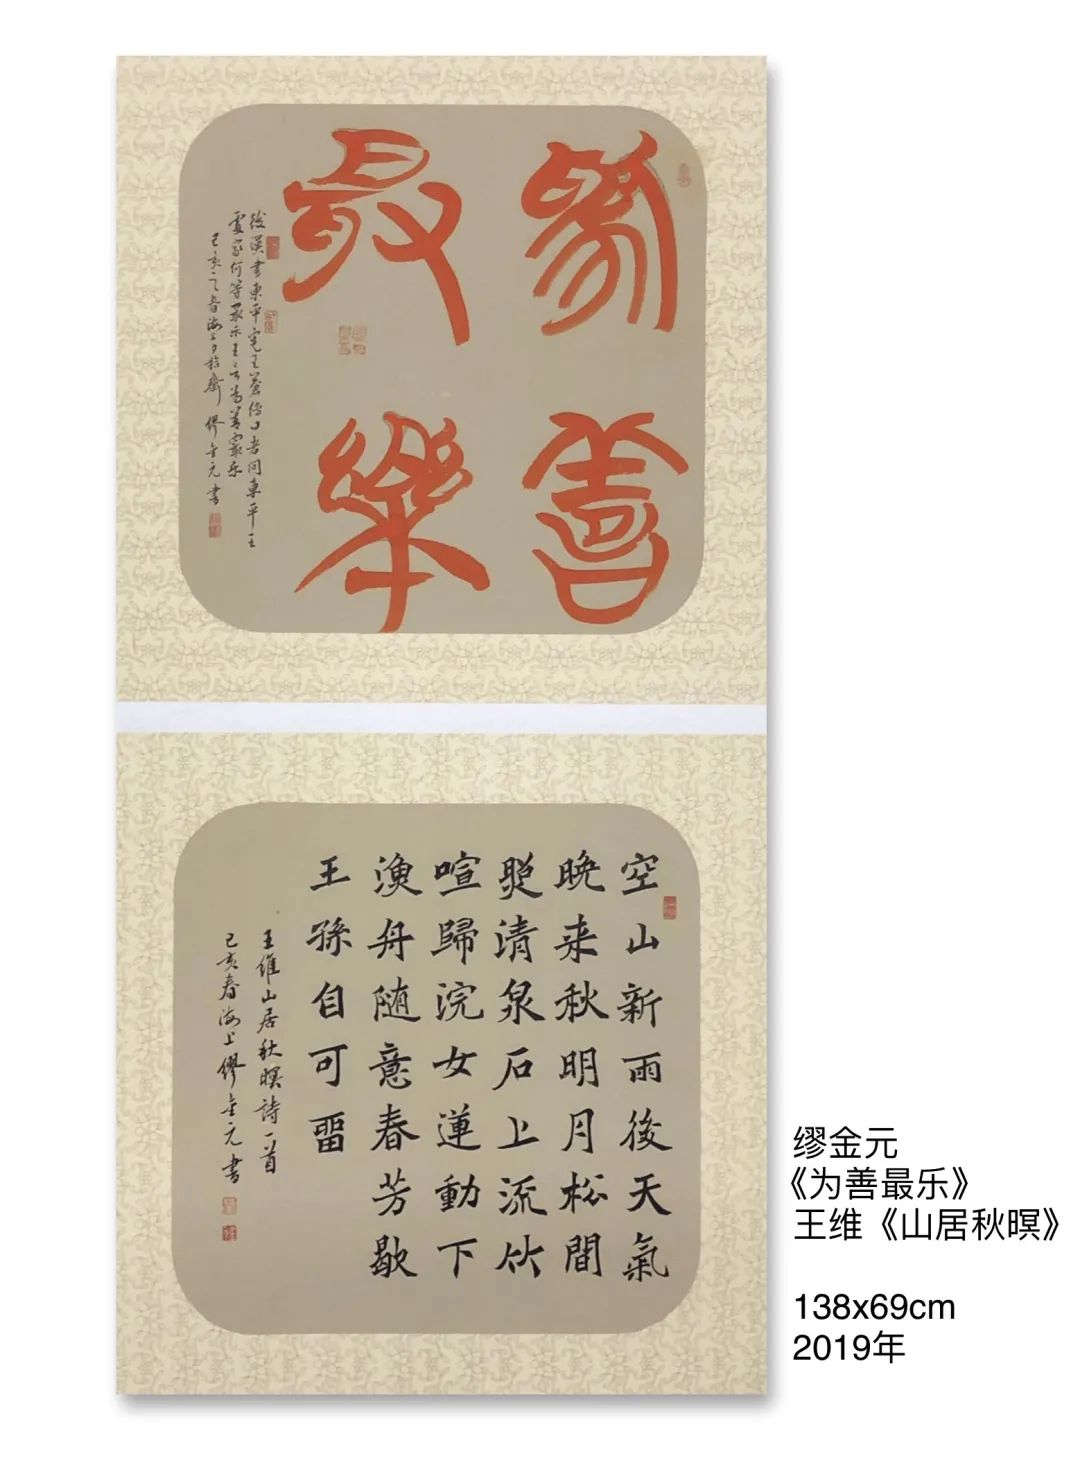 為善
最樂
後漢書東平憲王蒼傳日者問東平王
處家何等最乐王言為善最乐
己亥之春海上曰拙齋 繆金元書
空山新雨後天氣
晚来秋明月松間
照清泉石上流竹
喧歸浣女蓮動下
漁舟随意春芳歇
王孫自可畱
王維山居秋暝詩一首
己亥春海上繆金元書
缪金元
《为善最乐》
王维《山居秋暝》
138x69cm
2019年